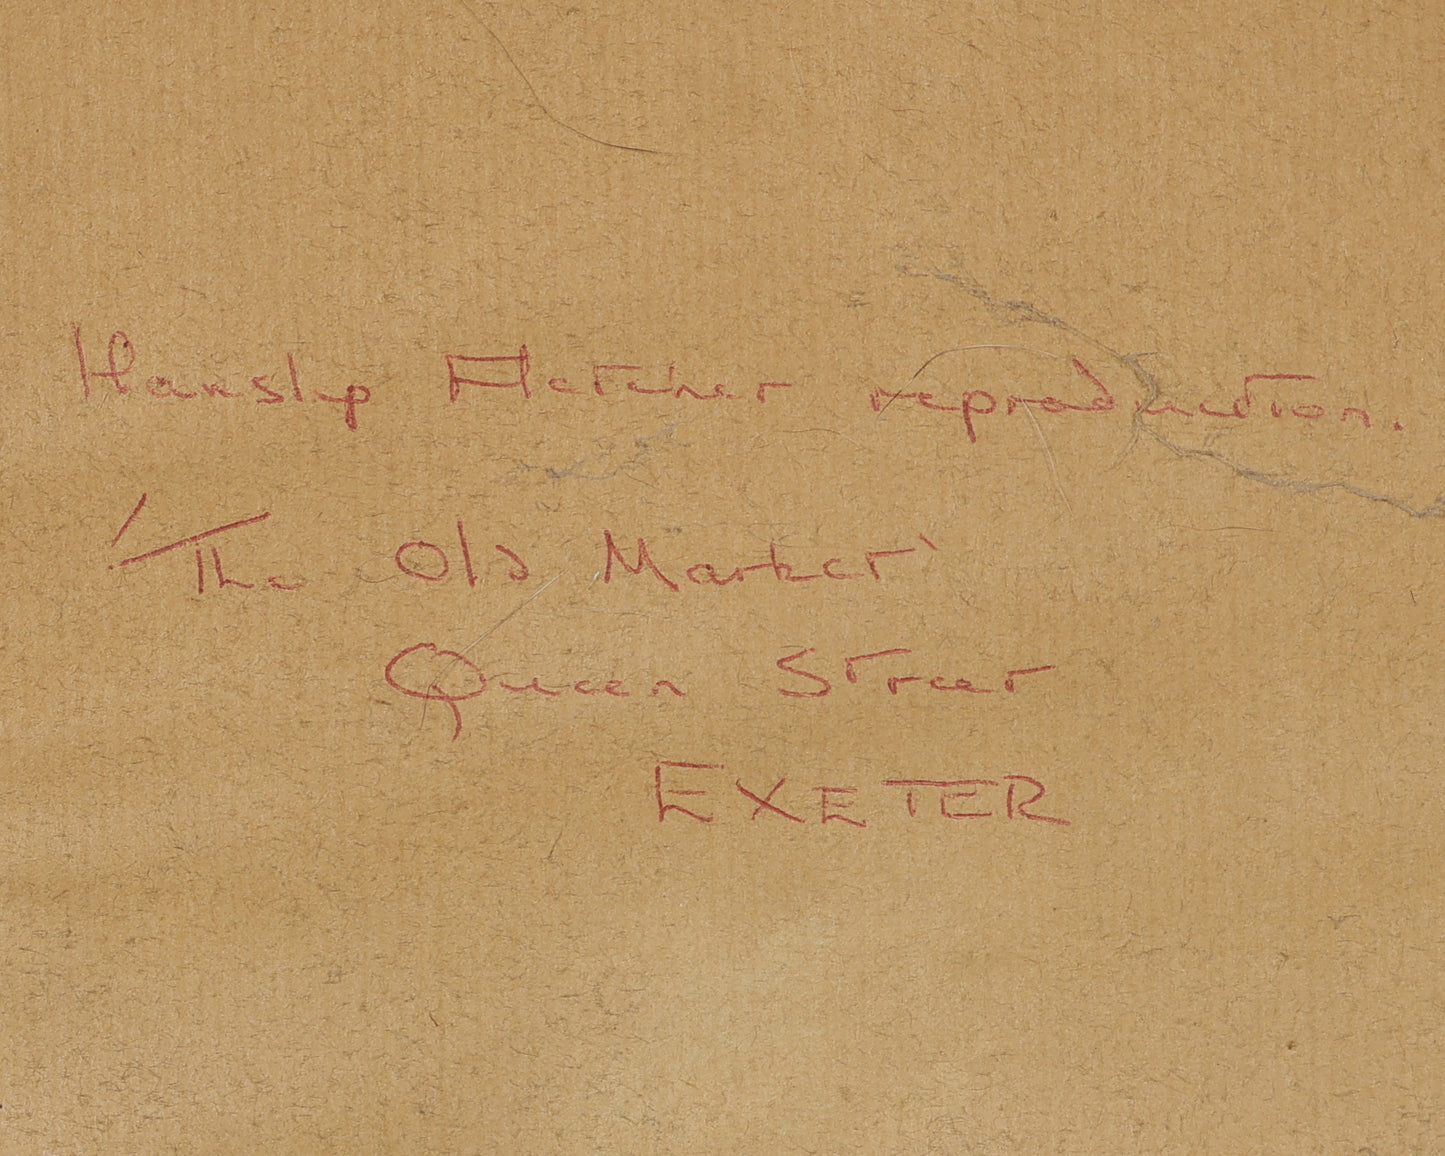 Hanslip Fletcher reproduction.
'The Old Market'
Queen Street
EXETER